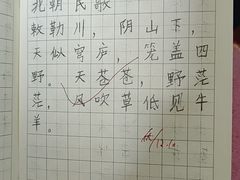 北朝民歌
敕勒川，阴山下，
天似穹庐，笼盖四
野。天苍苍，野茫
茫，风吹草低见牛
羊。